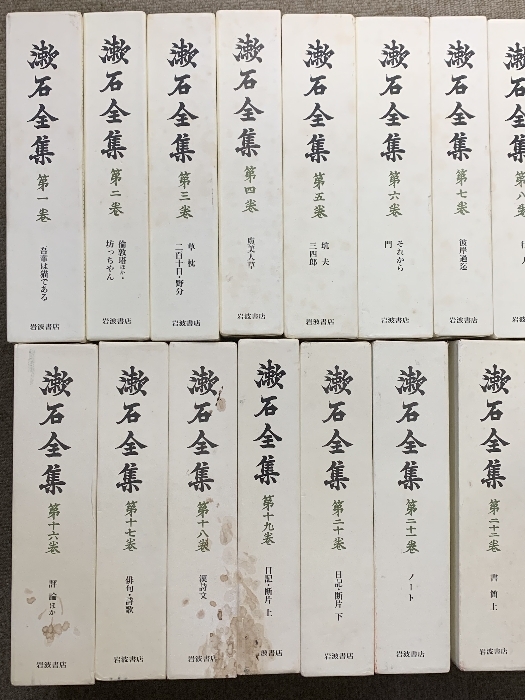 漱石全集
第一巻
吾輩は猫である
岩波書店
漱石全集
第二巻
倫敦塔ほか・
坊っちやん
岩波書店
漱石全集
第三巻
草枕
二百十日・野分
岩波書店
漱石全集
第四巻
虞美人草
岩波書店
漱石全集
第五巻
坑夫
三四郎
岩波書店
漱石全集
第六巻
それから
門
岩波書店
漱石全集
第七巻
彼岸過迄
岩波書店
漱石全集
第八巻
行人
漱石全集
第十六巻
評論ほか
岩波書店
漱石全集
第十七巻
俳句・詩歌
岩波書店
漱石全集
第十八巻
漢詩文
岩波書店
漱石全集
第十九巻
日記・断片 上
岩波書店
漱石全集
第二十巻
日記・断片 下
岩波書店
漱石全集
第二十一巻
ノート
岩波書店
漱石全集
第二十二巻
書簡 上
岩波書店